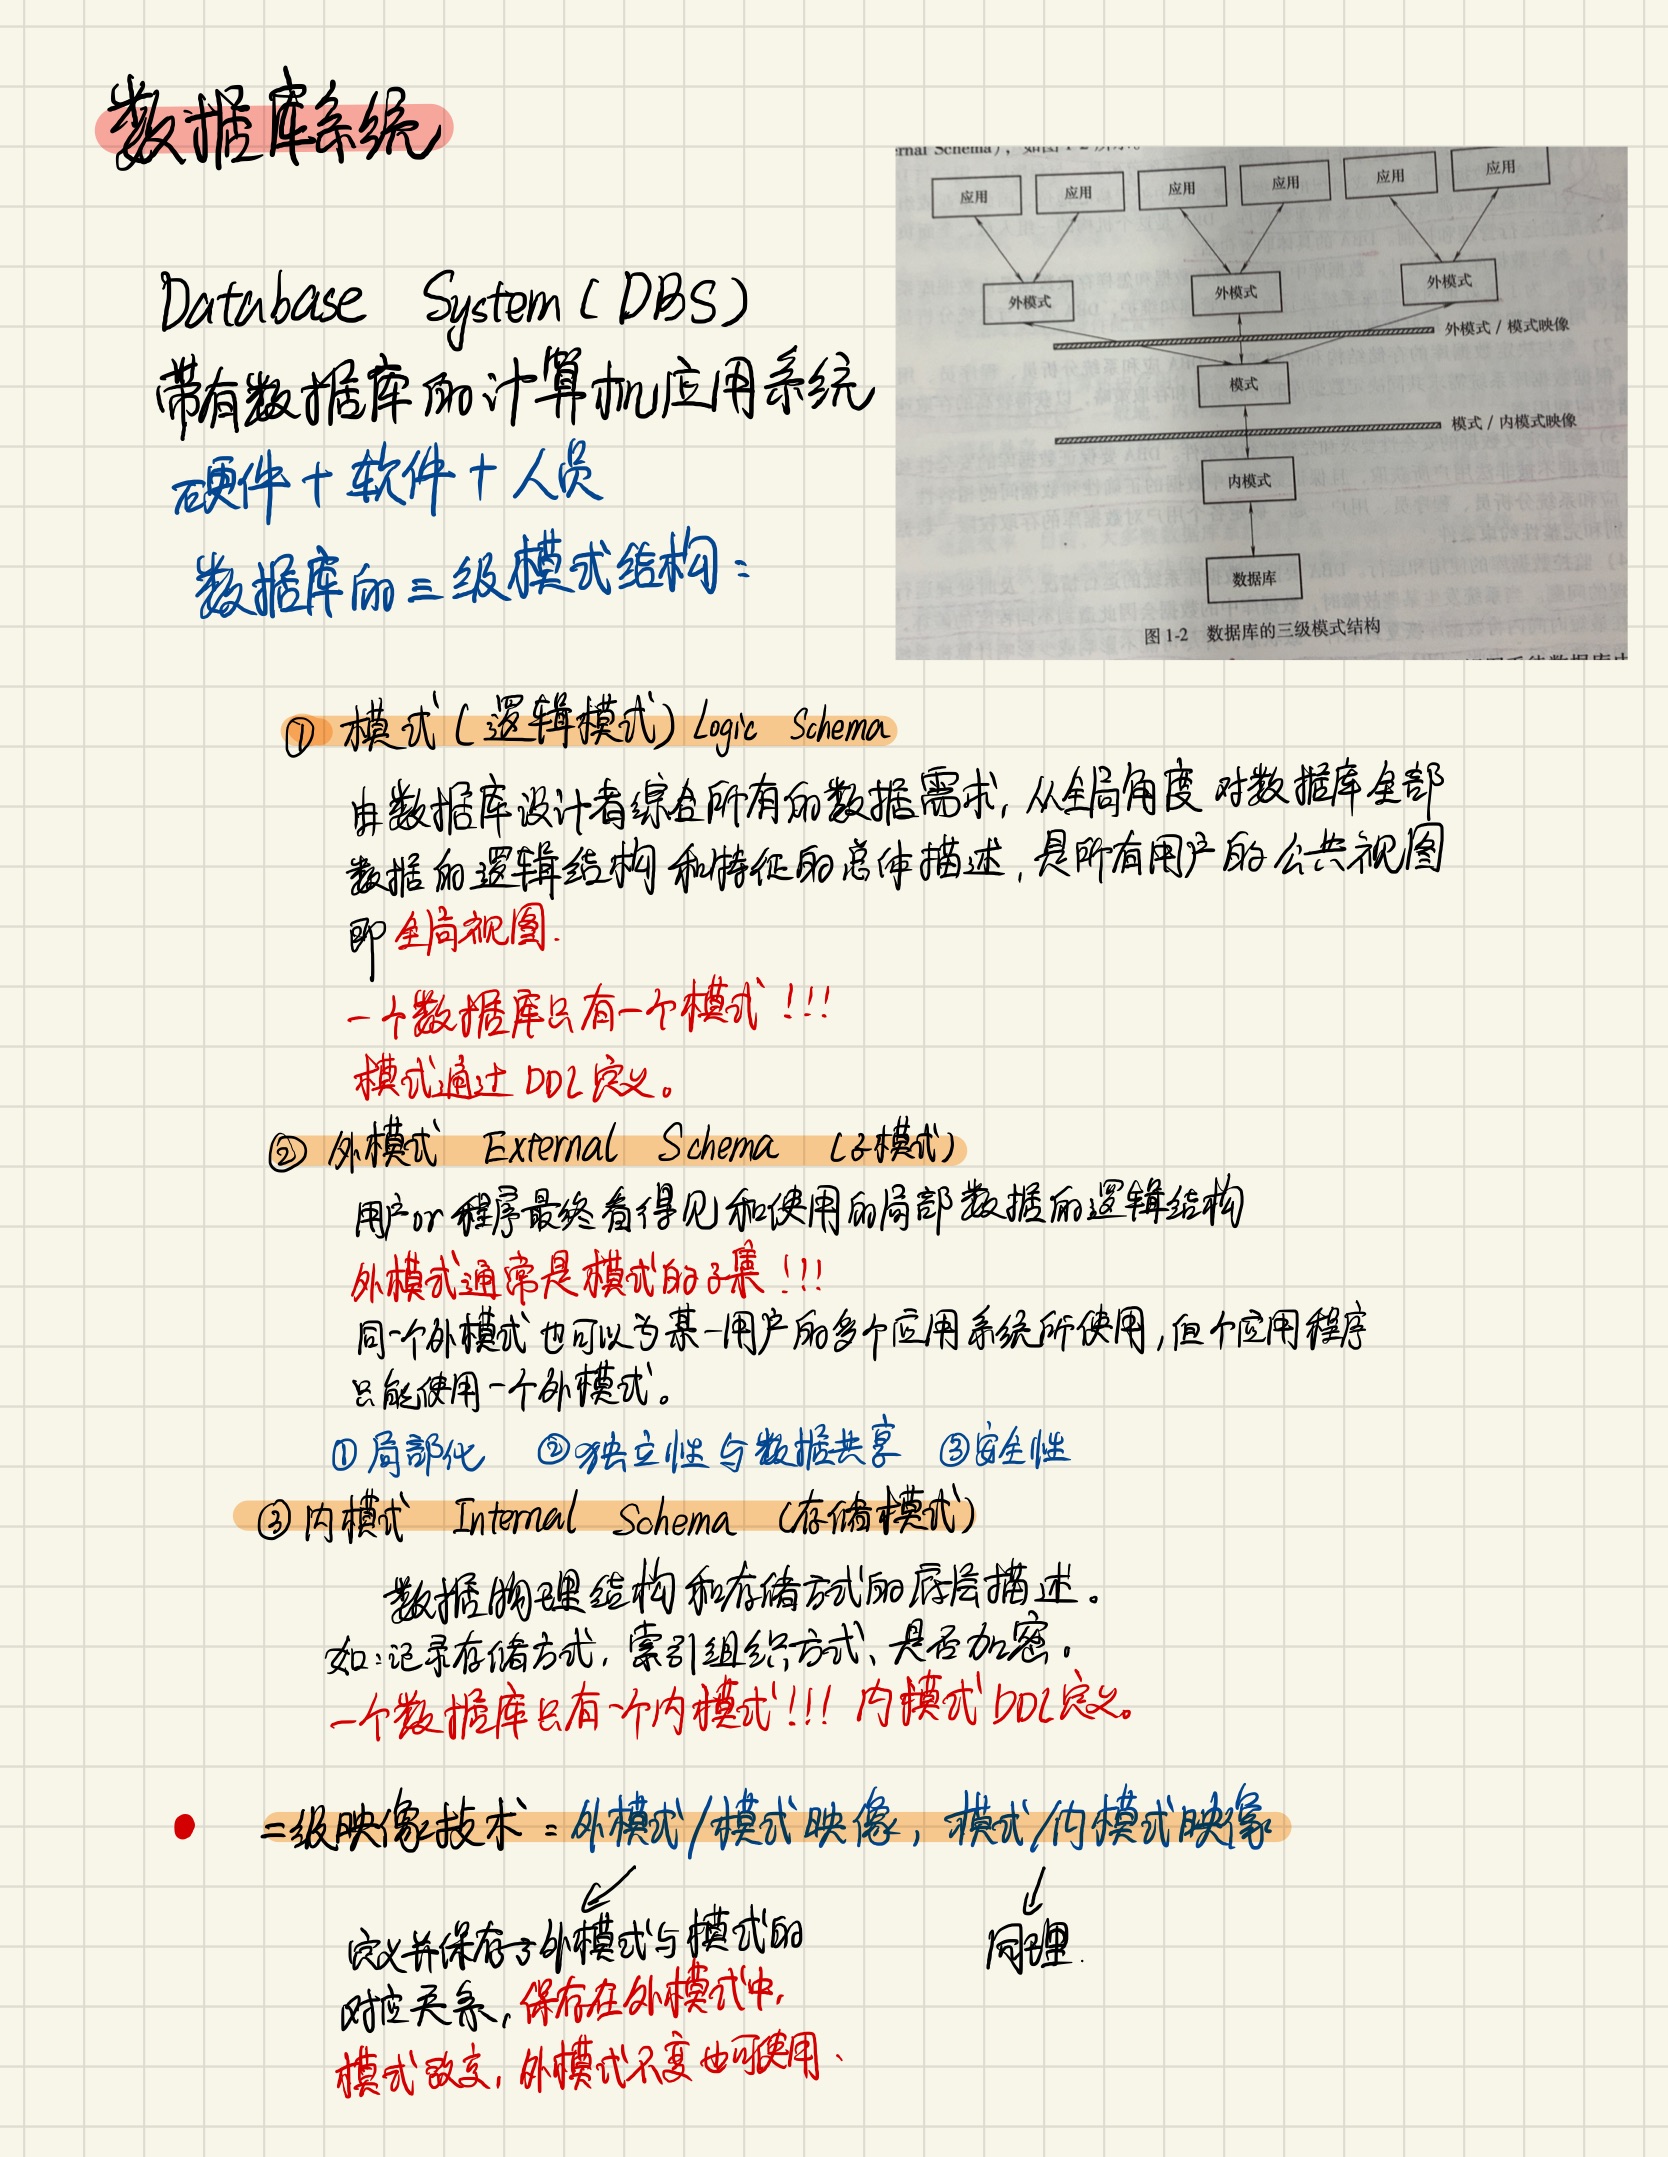 数据库系统
Database System (DBS)
带有数据库的计算机应用系统
硬件 + 软件 + 人员
数据库的三级模式结构：
应用 应用 应用 应用 应用 应用
外模式 外模式 外模式
外模式 / 模式映像
模式
模式 / 内模式映像
内模式
数据库
图 1-2 数据库的三级模式结构
① 模式(逻辑模式) Logic Schema
由数据库设计者综合所有的数据需求, 从全局角度对数据库全部
数据的逻辑结构和特征的总体描述, 是所有用户的公共视图
即全局视图.
一个数据库只有一个模式!!!
模式通过DDL定义。
② 外模式 External Schema (子模式)
用户or程序最终看得见和使用的局部数据的逻辑结构
外模式通常是模式的子集!!!
同一个外模式也可以为某一用户的多个应用系统所使用,但个应用程序
只能使用一个外模式。
①局部化 ②独立性与数据共享 ③安全性
③ 内模式 Internal Schema (存储模式)
数据物理结构和存储方式的底层描述。
如:记录存储方式, 索引组织方式、是否加密。
一个数据库只有一个内模式!!! 内模式DDL定义。
二级映像技术：外模式/模式映像, 模式/内模式映像
定义并保存了外模式与模式的
对应关系, 保存在外模式中,
模式改变, 外模式不变也可使用、
同理.